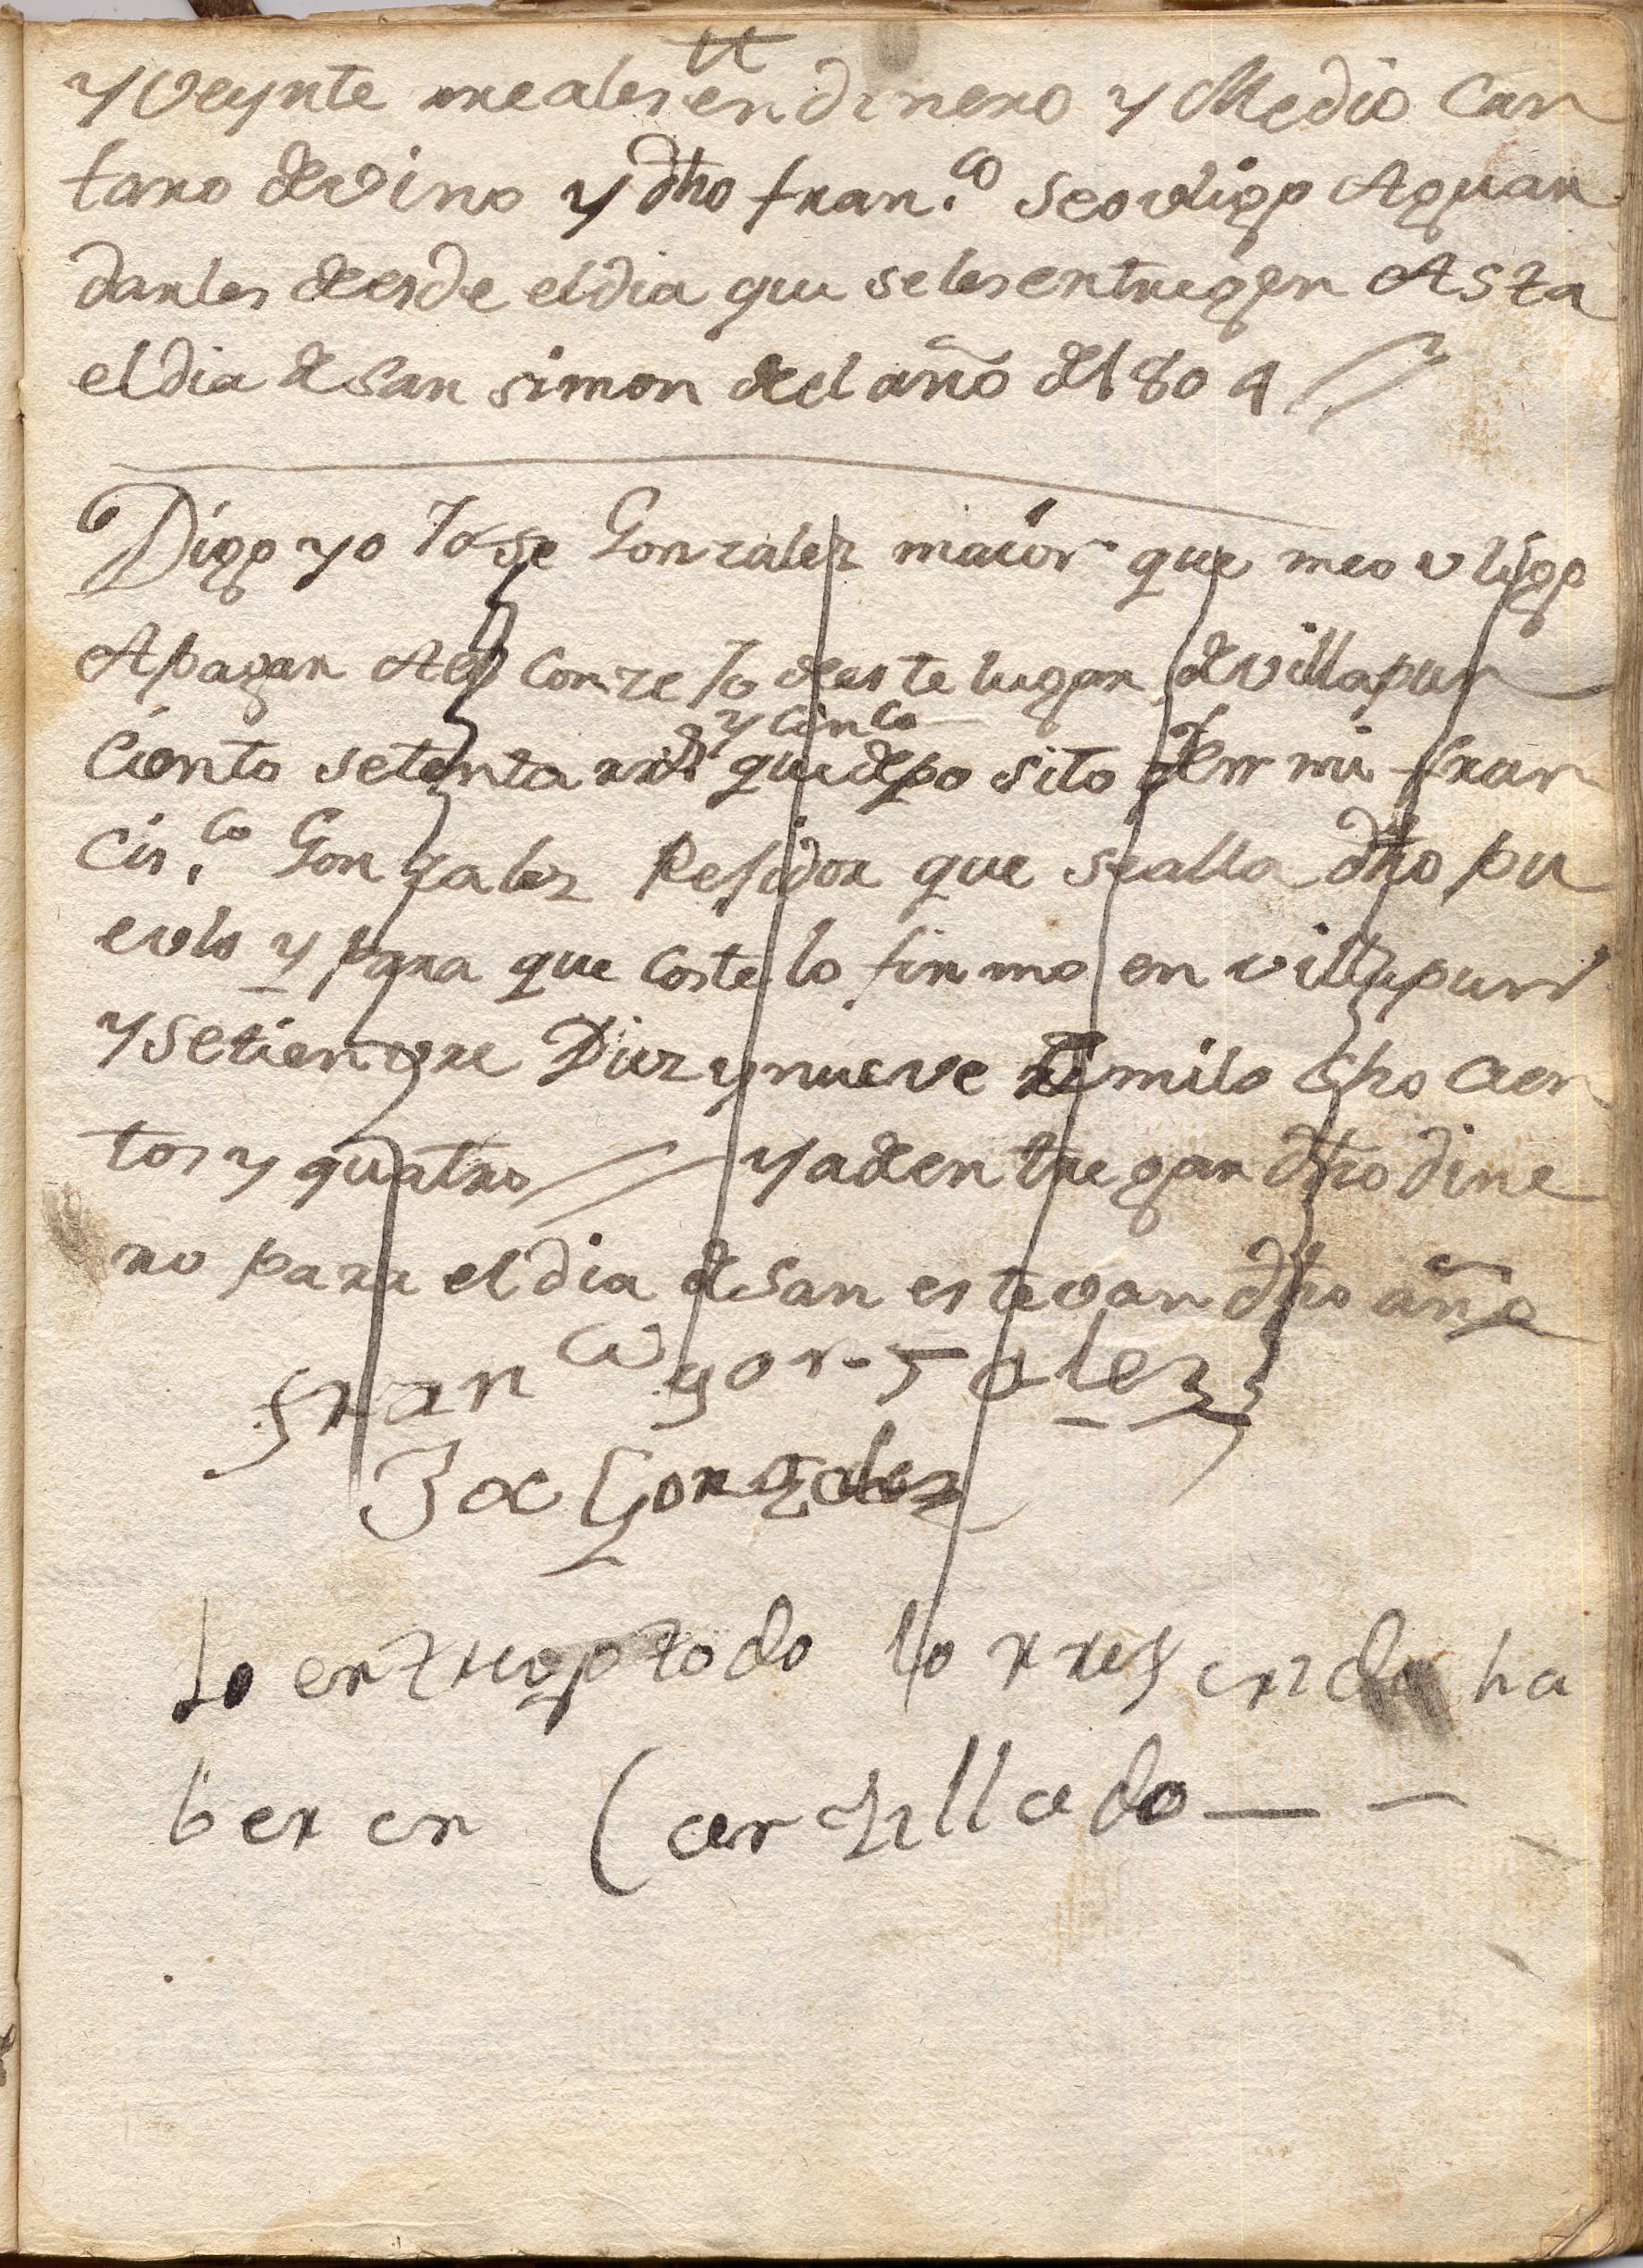 y veynte rreales en dinero y Medio Can
taro de vino y dho fran.co se ovligo Aguar
darles desde el dia que se les entregen Asta
el dia de san simon del año de 1804
Digo yo Jose Gonzalez maior que me ovligo
Apagar Ael Conzejo deeste lugar de villapun
y cinco
Ciento setenta rrs que deposito en mi fran
cis.co Gonzalez Rejidor que sealla dho pu
evlo y para que coste lo firmo en villapun
y Setienvre Diez y nueve de milo cho cien
tos y quatro y a de entregar dho dine
ro para el dia de san estevan dho año
franco gonzalez
Jose Gonzalez
lo entrego todo lo rres
ber en Cantillado